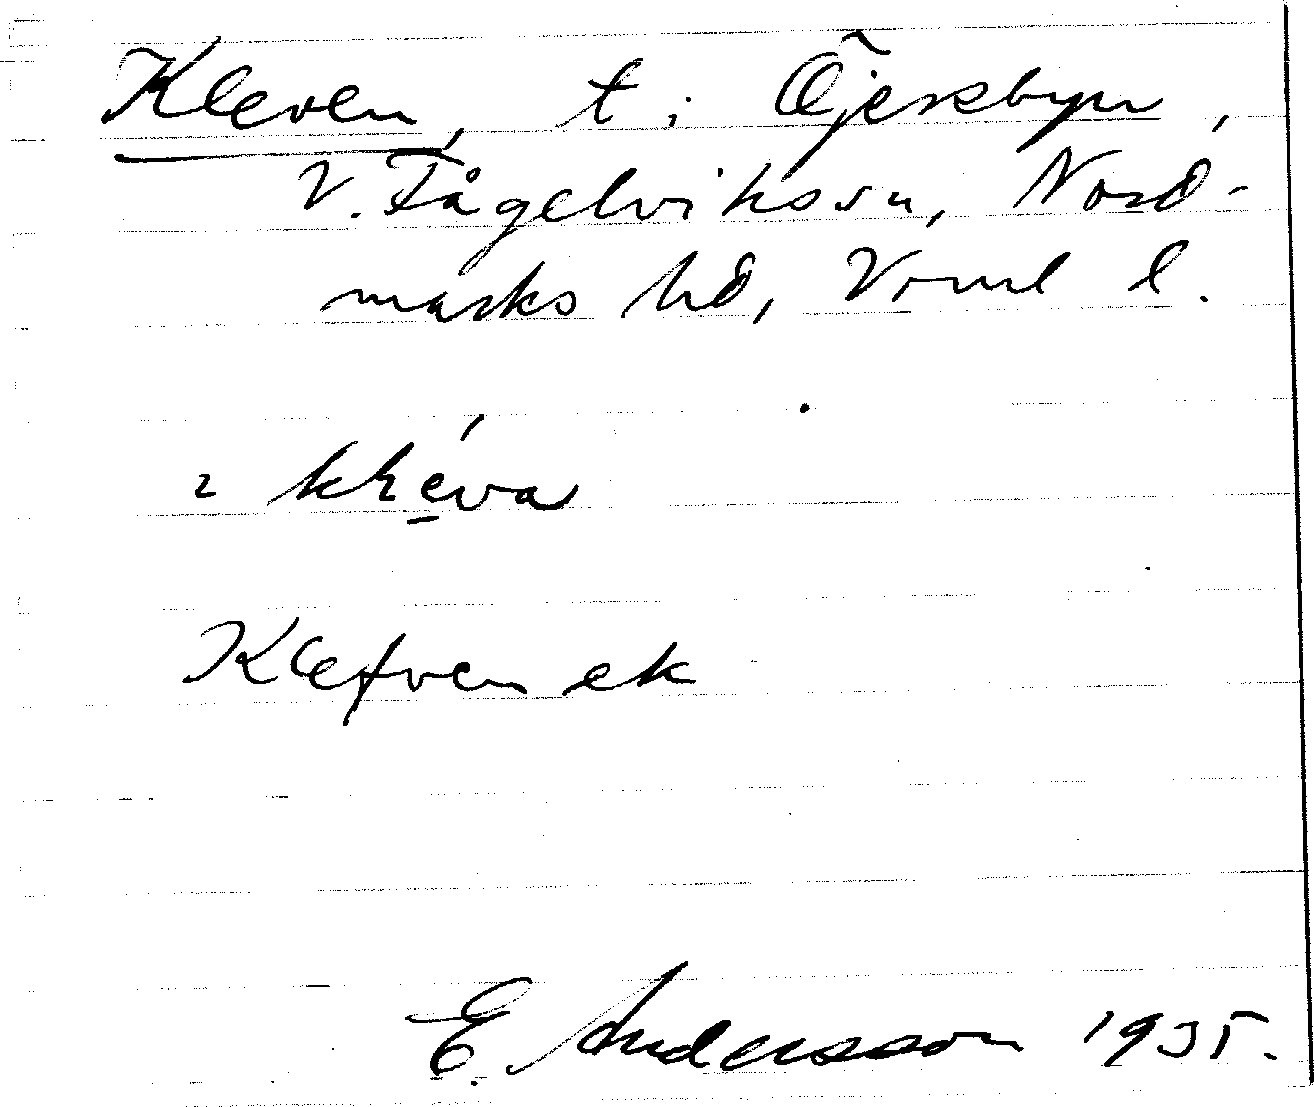 Kleven, t. Öjersbyn,
V. Fågelvikssn, Nord-
marks hd, Vrml l.
kléva
Klefven ek
E. Andersson 1935.